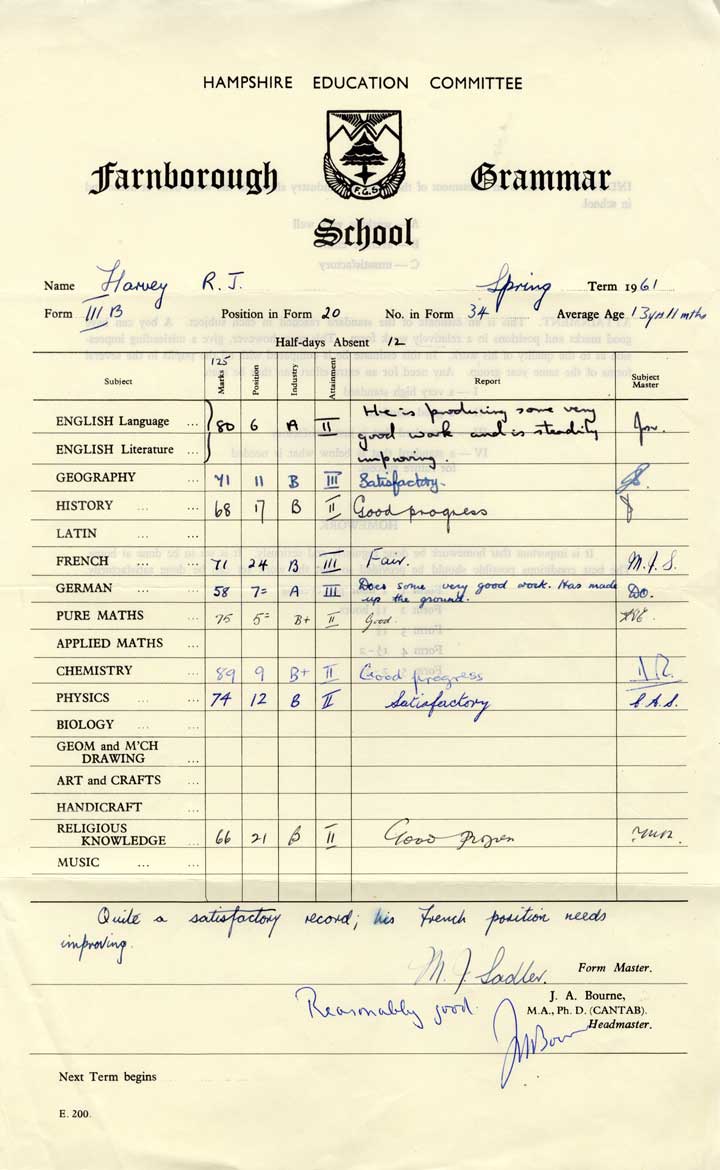 HAMPSHIRE EDUCATION COMMITTEE
Farnborough Grammar
F.G.S.
School
Name Harvey R. J. Spring Term 1961
Form III B Position in Form 20 No. in Form 34 Average Age 13 yrs 11 mths
Half-days Absent 12
Subject Marks 125 Position Industry Attainment Report Subject Master
ENGLISH Language ... 80 6 A II He is producing some very good work and is steadily improving.
ENGLISH Literature ...
GEOGRAPHY ... 71 11 B III Satisfactory.
HISTORY ... ... 68 17 B II Good progress
LATIN ... ...
FRENCH ... ... 71 24 B III Fair. M.J.S.
GERMAN ... ... 58 7= A III Does some very good work. Has made up the ground. Do.
PURE MATHS ... 75 5= B+ II Good.
APPLIED MATHS ...
CHEMISTRY ... 89 9 B+ II Good progress
PHYSICS ... ... 74 12 B II Satisfactory
BIOLOGY ... ...
GEOM and M'CH DRAWING ...
ART and CRAFTS ...
HANDICRAFT ...
RELIGIOUS KNOWLEDGE ... 66 21 B II Good
MUSIC ... ...
Quite a satisfactory record; his French position needs
improving.
M. J. Sadler. Form Master.
Reasonably good.
J. A. Bourne,
M.A., Ph. D. (CANTAB).
Headmaster.
Next Term begins
E. 200.